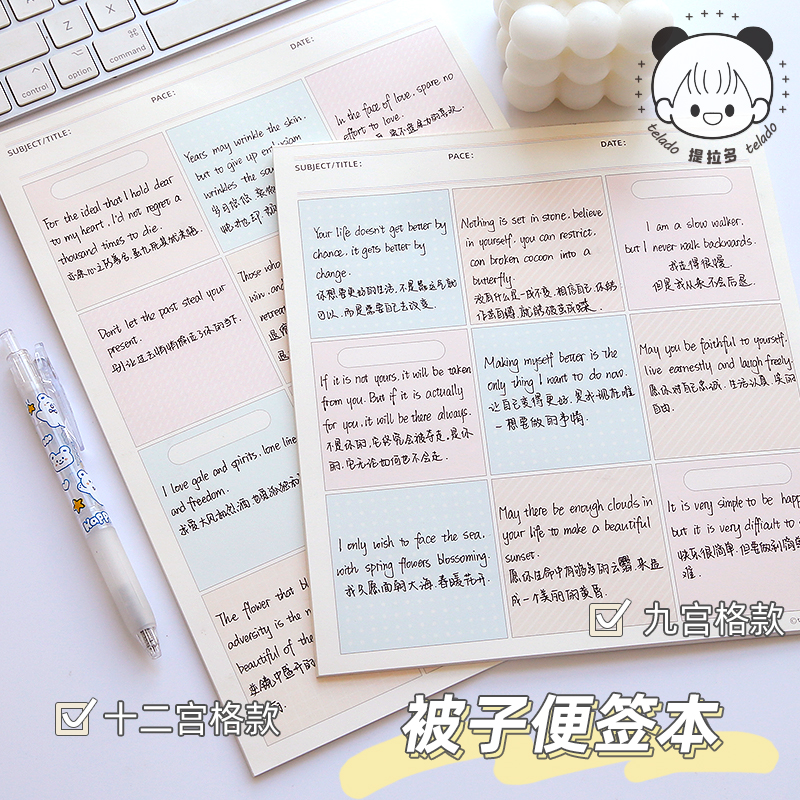 control
option
command
telado
提拉多
telado
SUBJECT/TITLE:
PACE:
DATE:
For the ideal that I hold dear
to my heart, I'd not regret a
thousand times to die.
Years may wrinkle the skin,
but to give up enthusiasm
wrinkles the
In the face of love, spare no
effort to love.
Don't let the past steal your
present.
别让过去悄悄偷走了你的当下.
Those who
win, and
I love gale and spirits, lone
and freedom.
The flower that
adversity is the
beautiful of the
SUBJECT/TITLE:
PACE:
DATE:
Your life doesn't get better by
chance, it gets better by
change.
你想要更好的生活, 不是靠运气就
可以, 而是需要自己去改变.
Nothing is set in stone, believe
in yourself, you can restrict,
can broken cocoon into a
butterfly.
没有什么是一成不变, 相信自己, 你能
I am a slow walker,
but I never walk backwards.
我走得很慢,
但是我从来不会后退.
If it is not yours, it will be taken
from you. But if it is actually
for you, it will be there always.
不是你的, 它终究会被夺走, 是你
的, 它无论如何也不会走.
Making myself better is the
only thing I want to do now.
让自己变得更好, 是我现在唯
一想要做的事情.
May you be faithful to yourself,
live earnestly and laugh freely.
愿你对自己忠诚, 生活认真, 笑的
自由.
I only wish to face the sea,
with spring flowers blossoming.
我只愿面朝大海, 春暖花开.
May there be enough clouds in
your life to make a beautiful
sunset.
愿你生命中有够多的云翳, 来造
成一个美丽的黄昏.
It is very simple to be
but it is very difficult to
快乐很简单, 但要做到简单
难.
九宫格款
十二宫格款
被子便签本